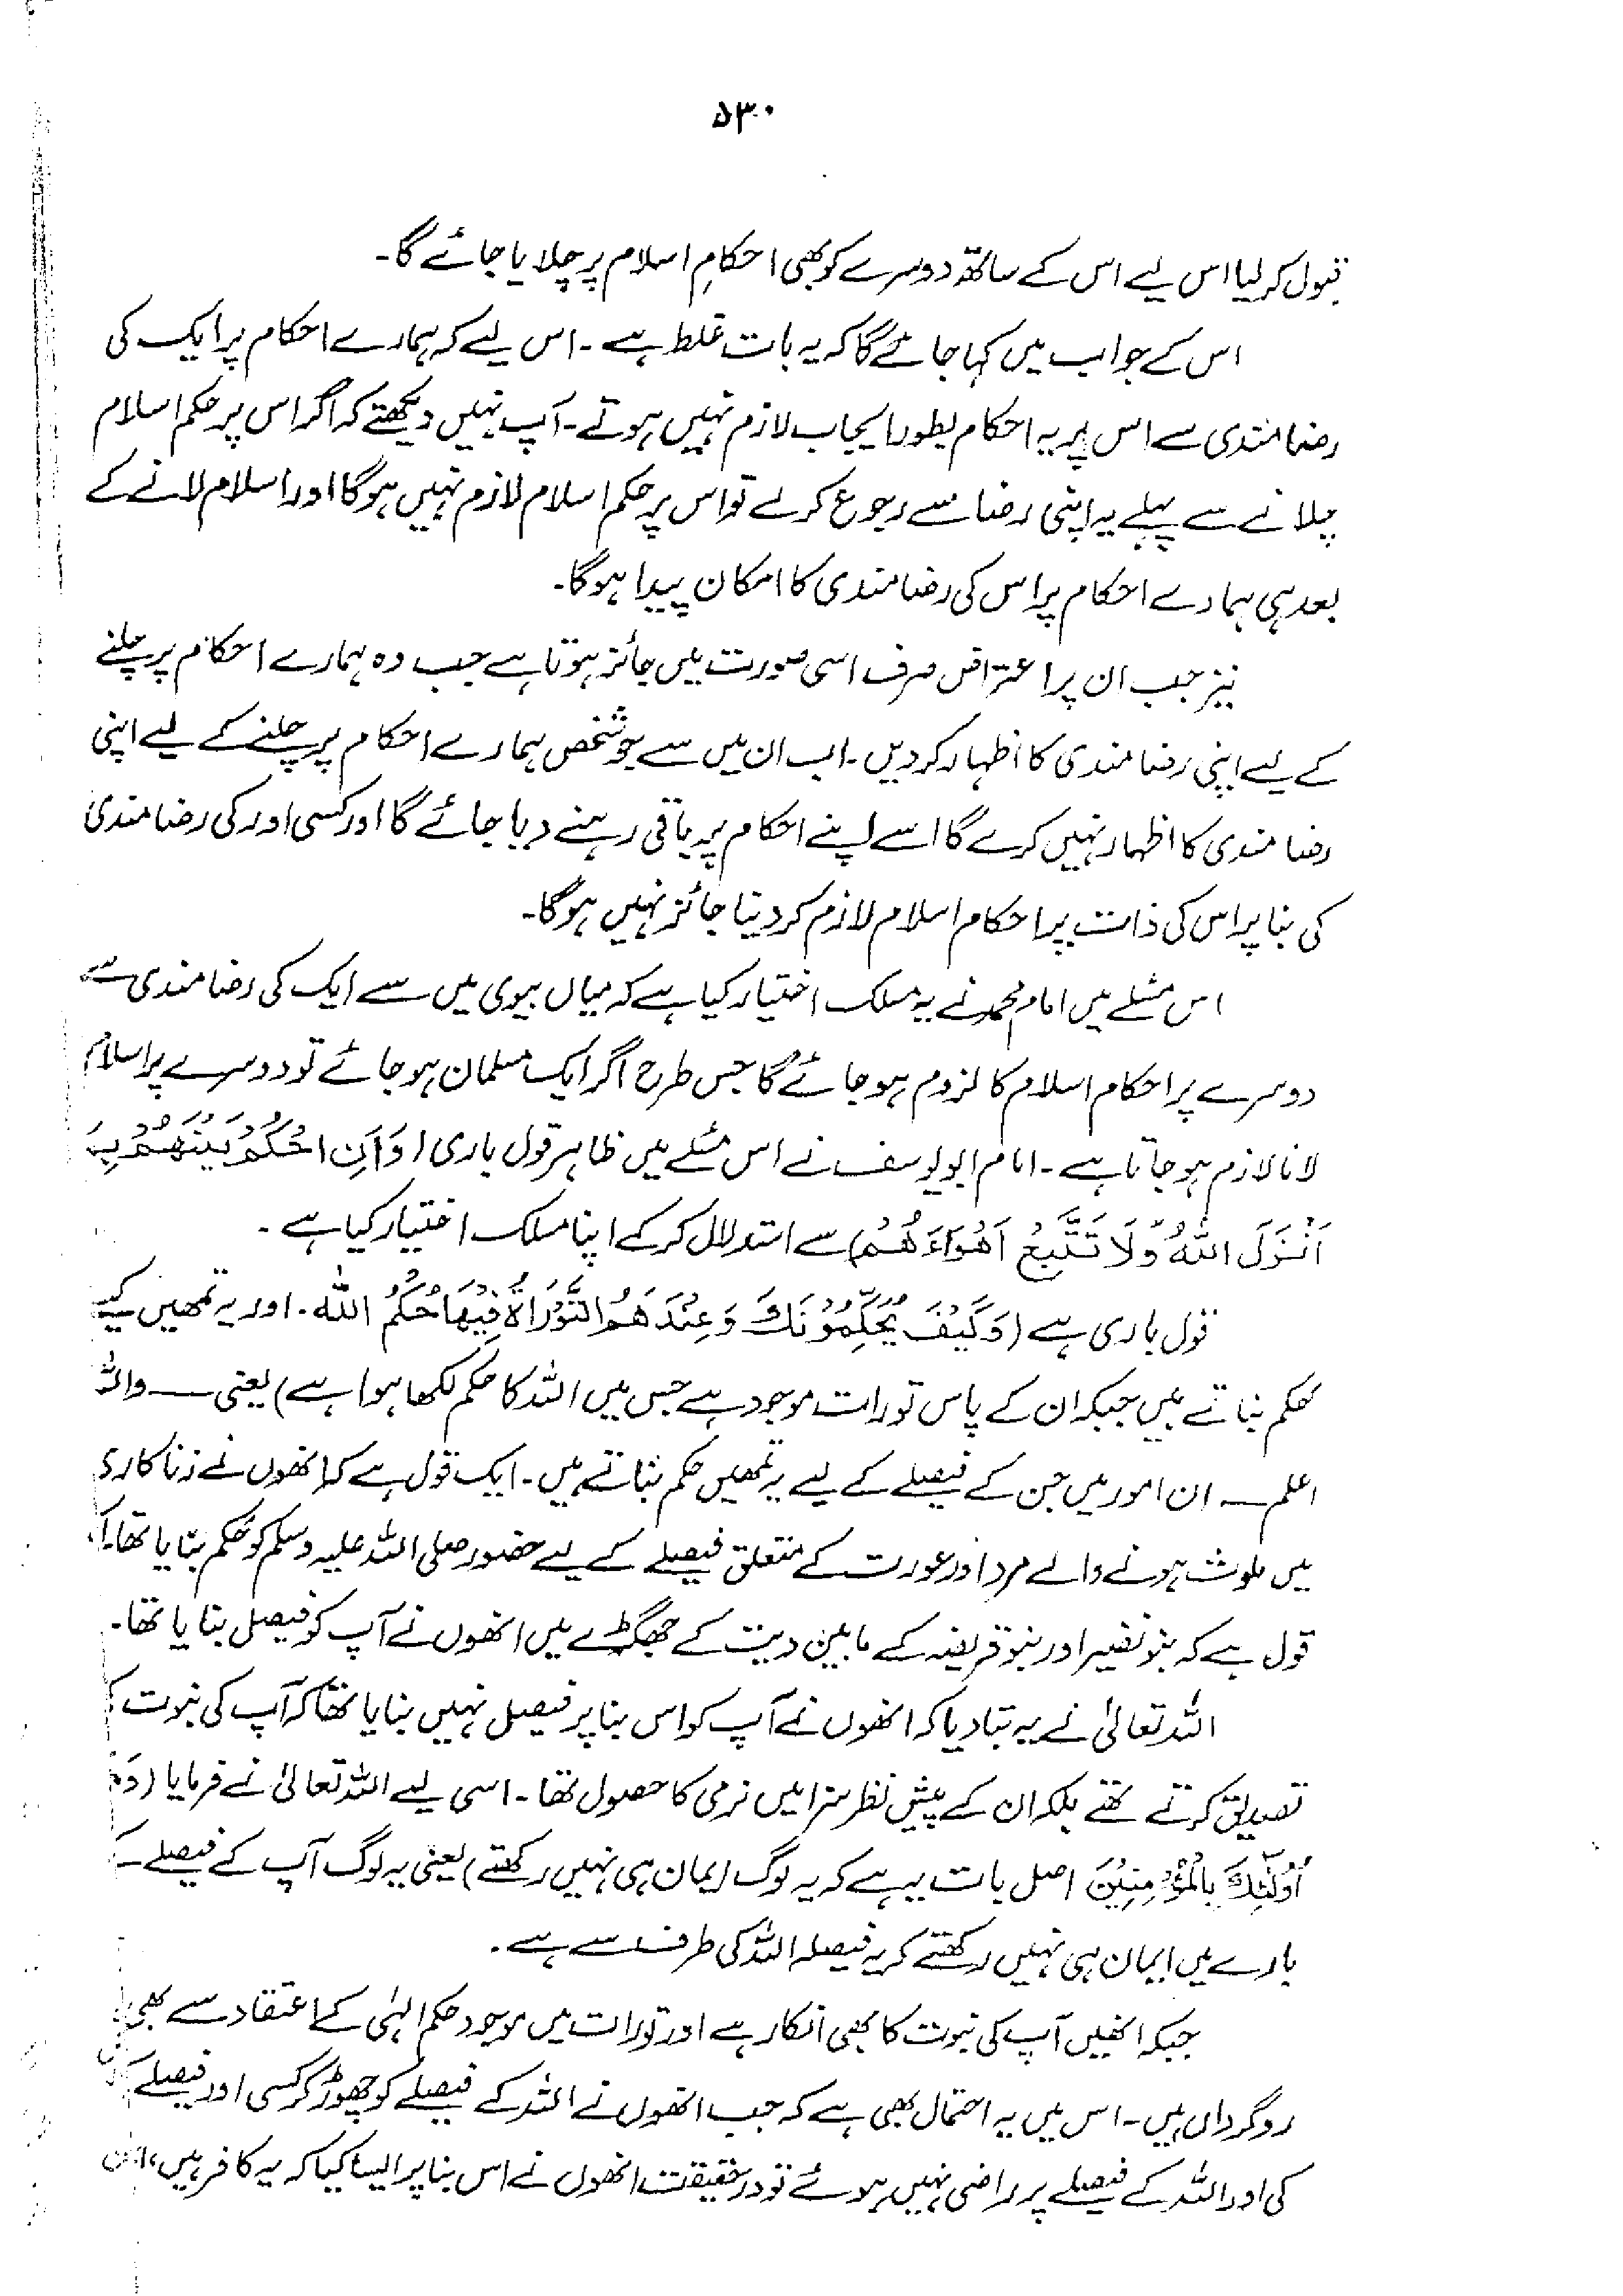 ۵۳۰
قبول کر لیا اس لیے اس کے ساتھ دوسرے کو بھی احکامِ اسلام پر چلایا جائے گا۔
اس کے جواب میں کہا جائے گا کہ یہ بات غلط ہے۔ اس لیے کہ ہمارے احکام پر ایک کی
رضامندی سے اس پر یہ احکام بطور ایجاب لازم نہیں ہوتے۔ آپ نہیں دیکھتے کہ اگر اس پر حکم اسلام
چلانے سے پہلے یہ اپنی رضا سے رجوع کر لے تو اس پر حکم اسلام لازم نہیں ہوگا اور اسلام لانے کے
بعد ہی ہمارے احکام پر اس کی رضامندی کا امکان پیدا ہوگا۔
نیز جب ان پر اعتراض صرف اسی صورت میں جائز ہوتا ہے جب وہ ہمارے احکام پر چلنے
کے لیے اپنی رضامندی کا اظہار کر دیں۔ اب ان میں سے جو شخص ہمارے احکام پر چلنے کے لیے اپنی
رضامندی کا اظہار نہیں کرے گا اسے اپنے احکام پر باقی رہنے دیا جائے گا اور کسی اور کی رضامندی
کی بنا پر اس کی ذات پر احکام اسلام لازم کر دینا جائز نہیں ہوگا۔
اس مسئلے میں امام محمد نے یہ مسلک اختیار کیا ہے کہ میاں بیوی میں سے ایک کی رضامندی سے
دوسرے پر احکام اسلام کا لزوم ہو جائے گا جس طرح اگر ایک مسلمان ہو جائے تو دوسرے پر اسلام
لانا لازم ہو جاتا ہے۔ امام ابویوسف نے اس مسئلے میں ظاہر قول باری (وَاَنِ احْكُمْ بَيْنَهُمْ بِمَا
اَنْزَلَ اللّٰهُ وَلَا تَتَّبِعْ اَهْوَاءَهُمْ) سے استدلال کر کے اپنا مسلک اختیار کیا ہے۔
قول باری ہے (وَكَيْفَ يُحَكِّمُوْنَكَ وَعِنْدَهُمُ التَّوْرَاةُ فِيْهَا حُكْمُ اللّٰه۔ اور یہ تمھیں کیسے
حکم بناتے ہیں جبکہ ان کے پاس تورات موجود ہے جس میں اللہ کا حکم لکھا ہوا ہے) یعنی ـــــ واللہ
اعلم ـــــ ان امور میں جن کے فیصلے کے لیے یہ تمھیں حکم بناتے ہیں۔ ایک قول ہے کہ انھوں نے زناکاری
میں ملوث ہونے والے مرد اور عورت کے متعلق فیصلے کے لیے حضور صلی اللہ علیہ وسلم کو حکم بنایا تھا۔
قول ہے کہ بنو نضیر اور بنو قریظہ کے مابین دیت کے جھگڑے میں انھوں نے آپ کو فیصل بنایا تھا۔
اللہ تعالیٰ نے یہ بتا دیا کہ انھوں نے آپ کو اس بنا پر فیصل نہیں بنایا تھا کہ آپ کی نبوت
تصدیق کرتے تھے بلکہ ان کے پیش نظر سزا میں نرمی کا حصول تھا۔ اسی لیے اللہ تعالیٰ نے فرمایا (وَمَا
اُولٰٓئِكَ بِالْمُؤْمِنِيْنَ اصل بات یہ ہے کہ یہ لوگ ایمان ہی نہیں رکھتے) یعنی یہ لوگ آپ کے فیصلے کے
بارے میں ایمان ہی نہیں رکھتے کہ یہ فیصلہ اللہ کی طرف سے ہے۔
جبکہ انھیں آپ کی نبوت کا بھی انکار ہے اور تورات میں موجود حکم الٰہی کے اعتقاد سے بھی
روگرداں ہیں۔ اس میں یہ احتمال بھی ہے کہ جب انھوں نے اللہ کے فیصلے کو چھوڑ کر کسی اور فیصلے
کی اور اللہ کے فیصلے پر راضی نہیں ہوئے تو درحقیقت انھوں نے اس بنا پر ایسا کیا کہ یہ کافر ہیں،